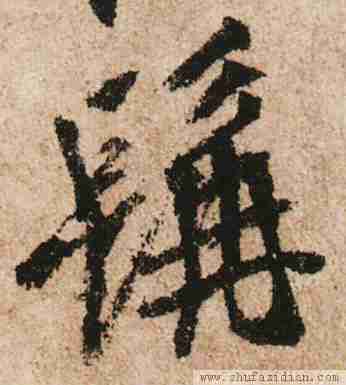 稱
www.shufazidian.com